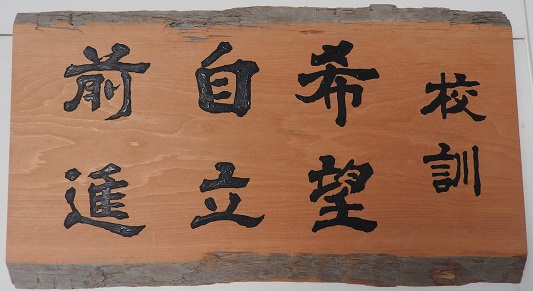 校訓
希望
自立
前進